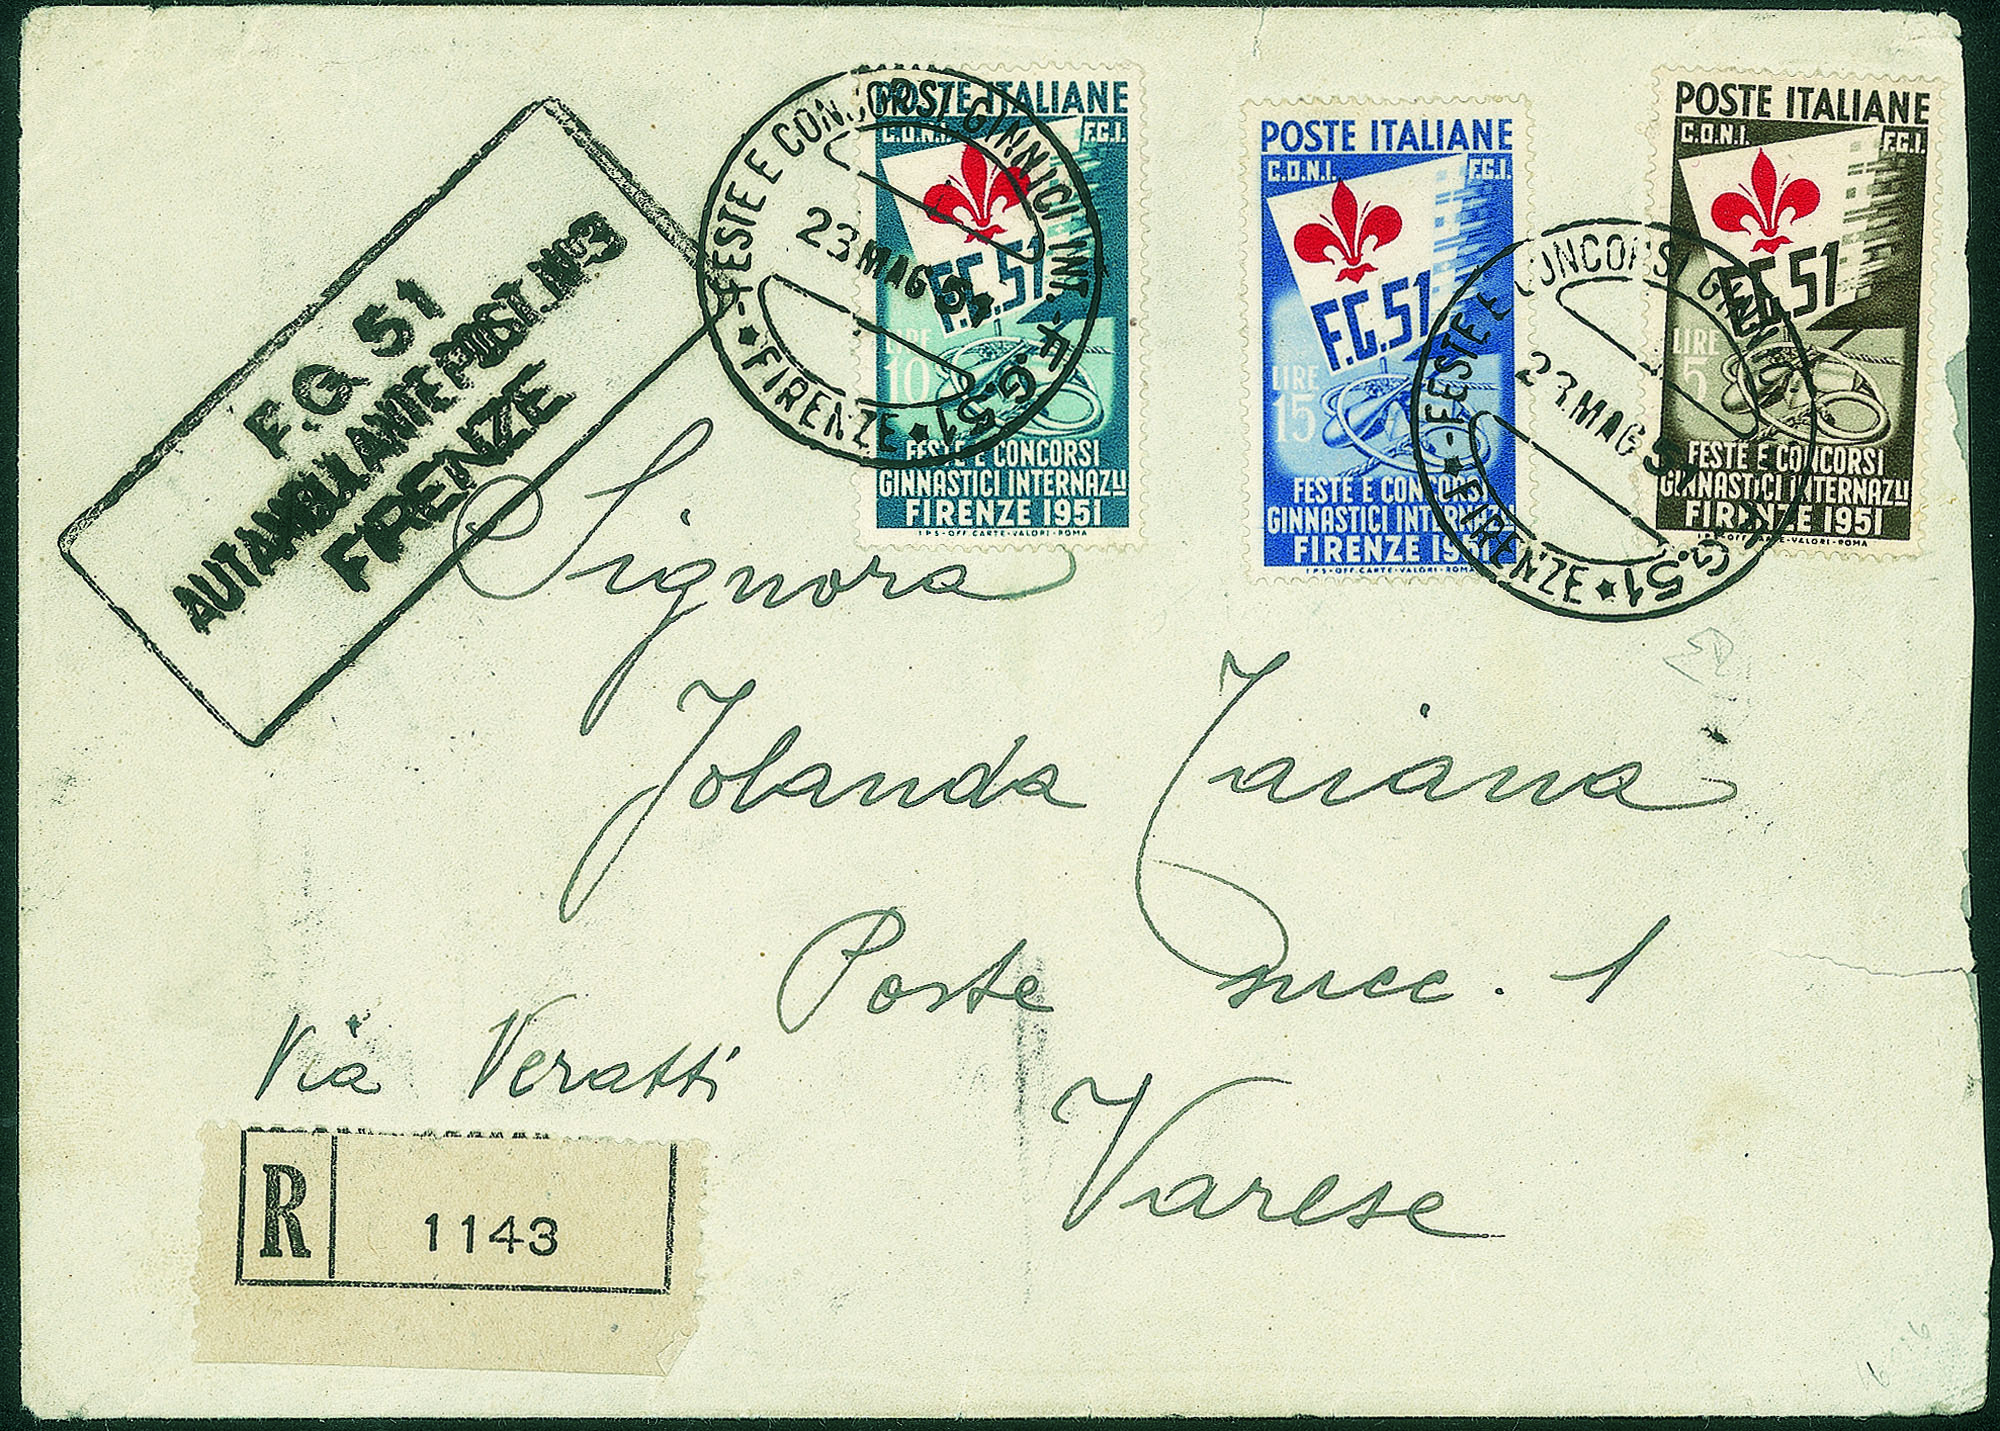 F.G 51
AUTAMBULANTE POST. Nº3
FIRENZE
FESTE E CONCORSI GINNICI INT. - F.G.51
23 MAG 51
★ FIRENZE ★
POSTE ITALIANE
C.O.N.I. F.G.I.
F.G.51
LIRE
10
FESTE E CONCORSI
GINNASTICI INTERNAZLI
FIRENZE 1951
I.P.S-OFF.CARTE-VALORI-ROMA
POSTE ITALIANE
C.O.N.I. F.G.I.
F.G.51
LIRE
15
FESTE E CONCORSI
GINNASTICI INTERNAZLI
FIRENZE 1951
I.P.S-OFF.CARTE-VALORI-ROMA
POSTE ITALIANE
C.O.N.I. F.G.I.
F.G.51
LIRE
5
FESTE E CONCORSI
GINNASTICI INTERNAZLI
FIRENZE 1951
I.P.S-OFF.CARTE-VALORI-ROMA
FESTE E CONCORSI GINNICI G.51
23.MAG 51
★ FIRENZE ★
Signora
Jolanda Taiana
Poste succ. 1
Via Veratti
Varese
R 1143